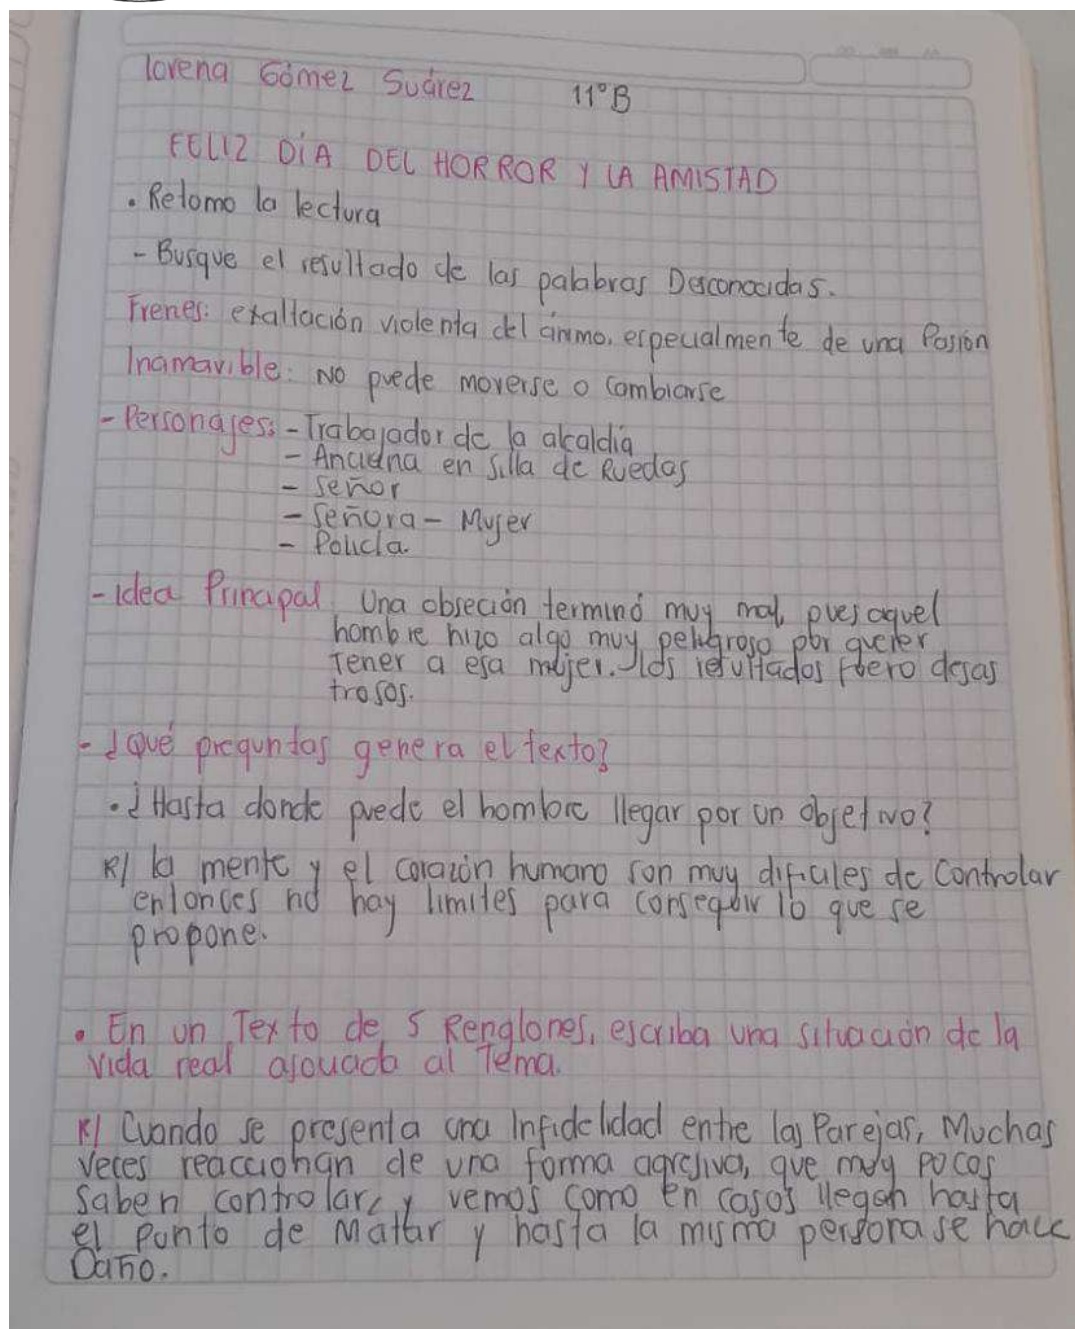 lorena Gómez Suárez 11°B
FELIZ DÍA DEL HORROR Y LA AMISTAD
• Retomo la lectura
- Busque el resultado de las palabras Desconocidas.
Frenes: exaltación violenta del ánimo, especialmente de una Pasión
Inamavible: No puede moverse o cambiarse
- Personajes: - Trabajador de la alcaldía
- Anciana en silla de Ruedas
- Señor
- Señora - Mujer
- Policía
- idea Principal Una obseción terminó muy mal, pues aquel
hombre hizo algo muy peligroso por querer
Tener a esa mujer. los resultados fuero desas
trosos.
- ¿Qué preguntas genera el texto?
• ¿Hasta donde puede el hombre llegar por un objetivo?
R/ la mente y el corazón humano son muy dificiles de Controlar
entonces no hay limites para conseguir lo que se
propone.
• En un Texto de 5 Renglones, escriba una situación de la
vida real asouado al Tema.
R/ Cuando se presenta una Infidelidad entre las Parejas, Muchas
veces reaccionan de una forma agresiva, que muy pocos
saben controlar, y vemos como en casos llegan hasta
el punto de Matar y hasta la misma persona se hace
Daño.